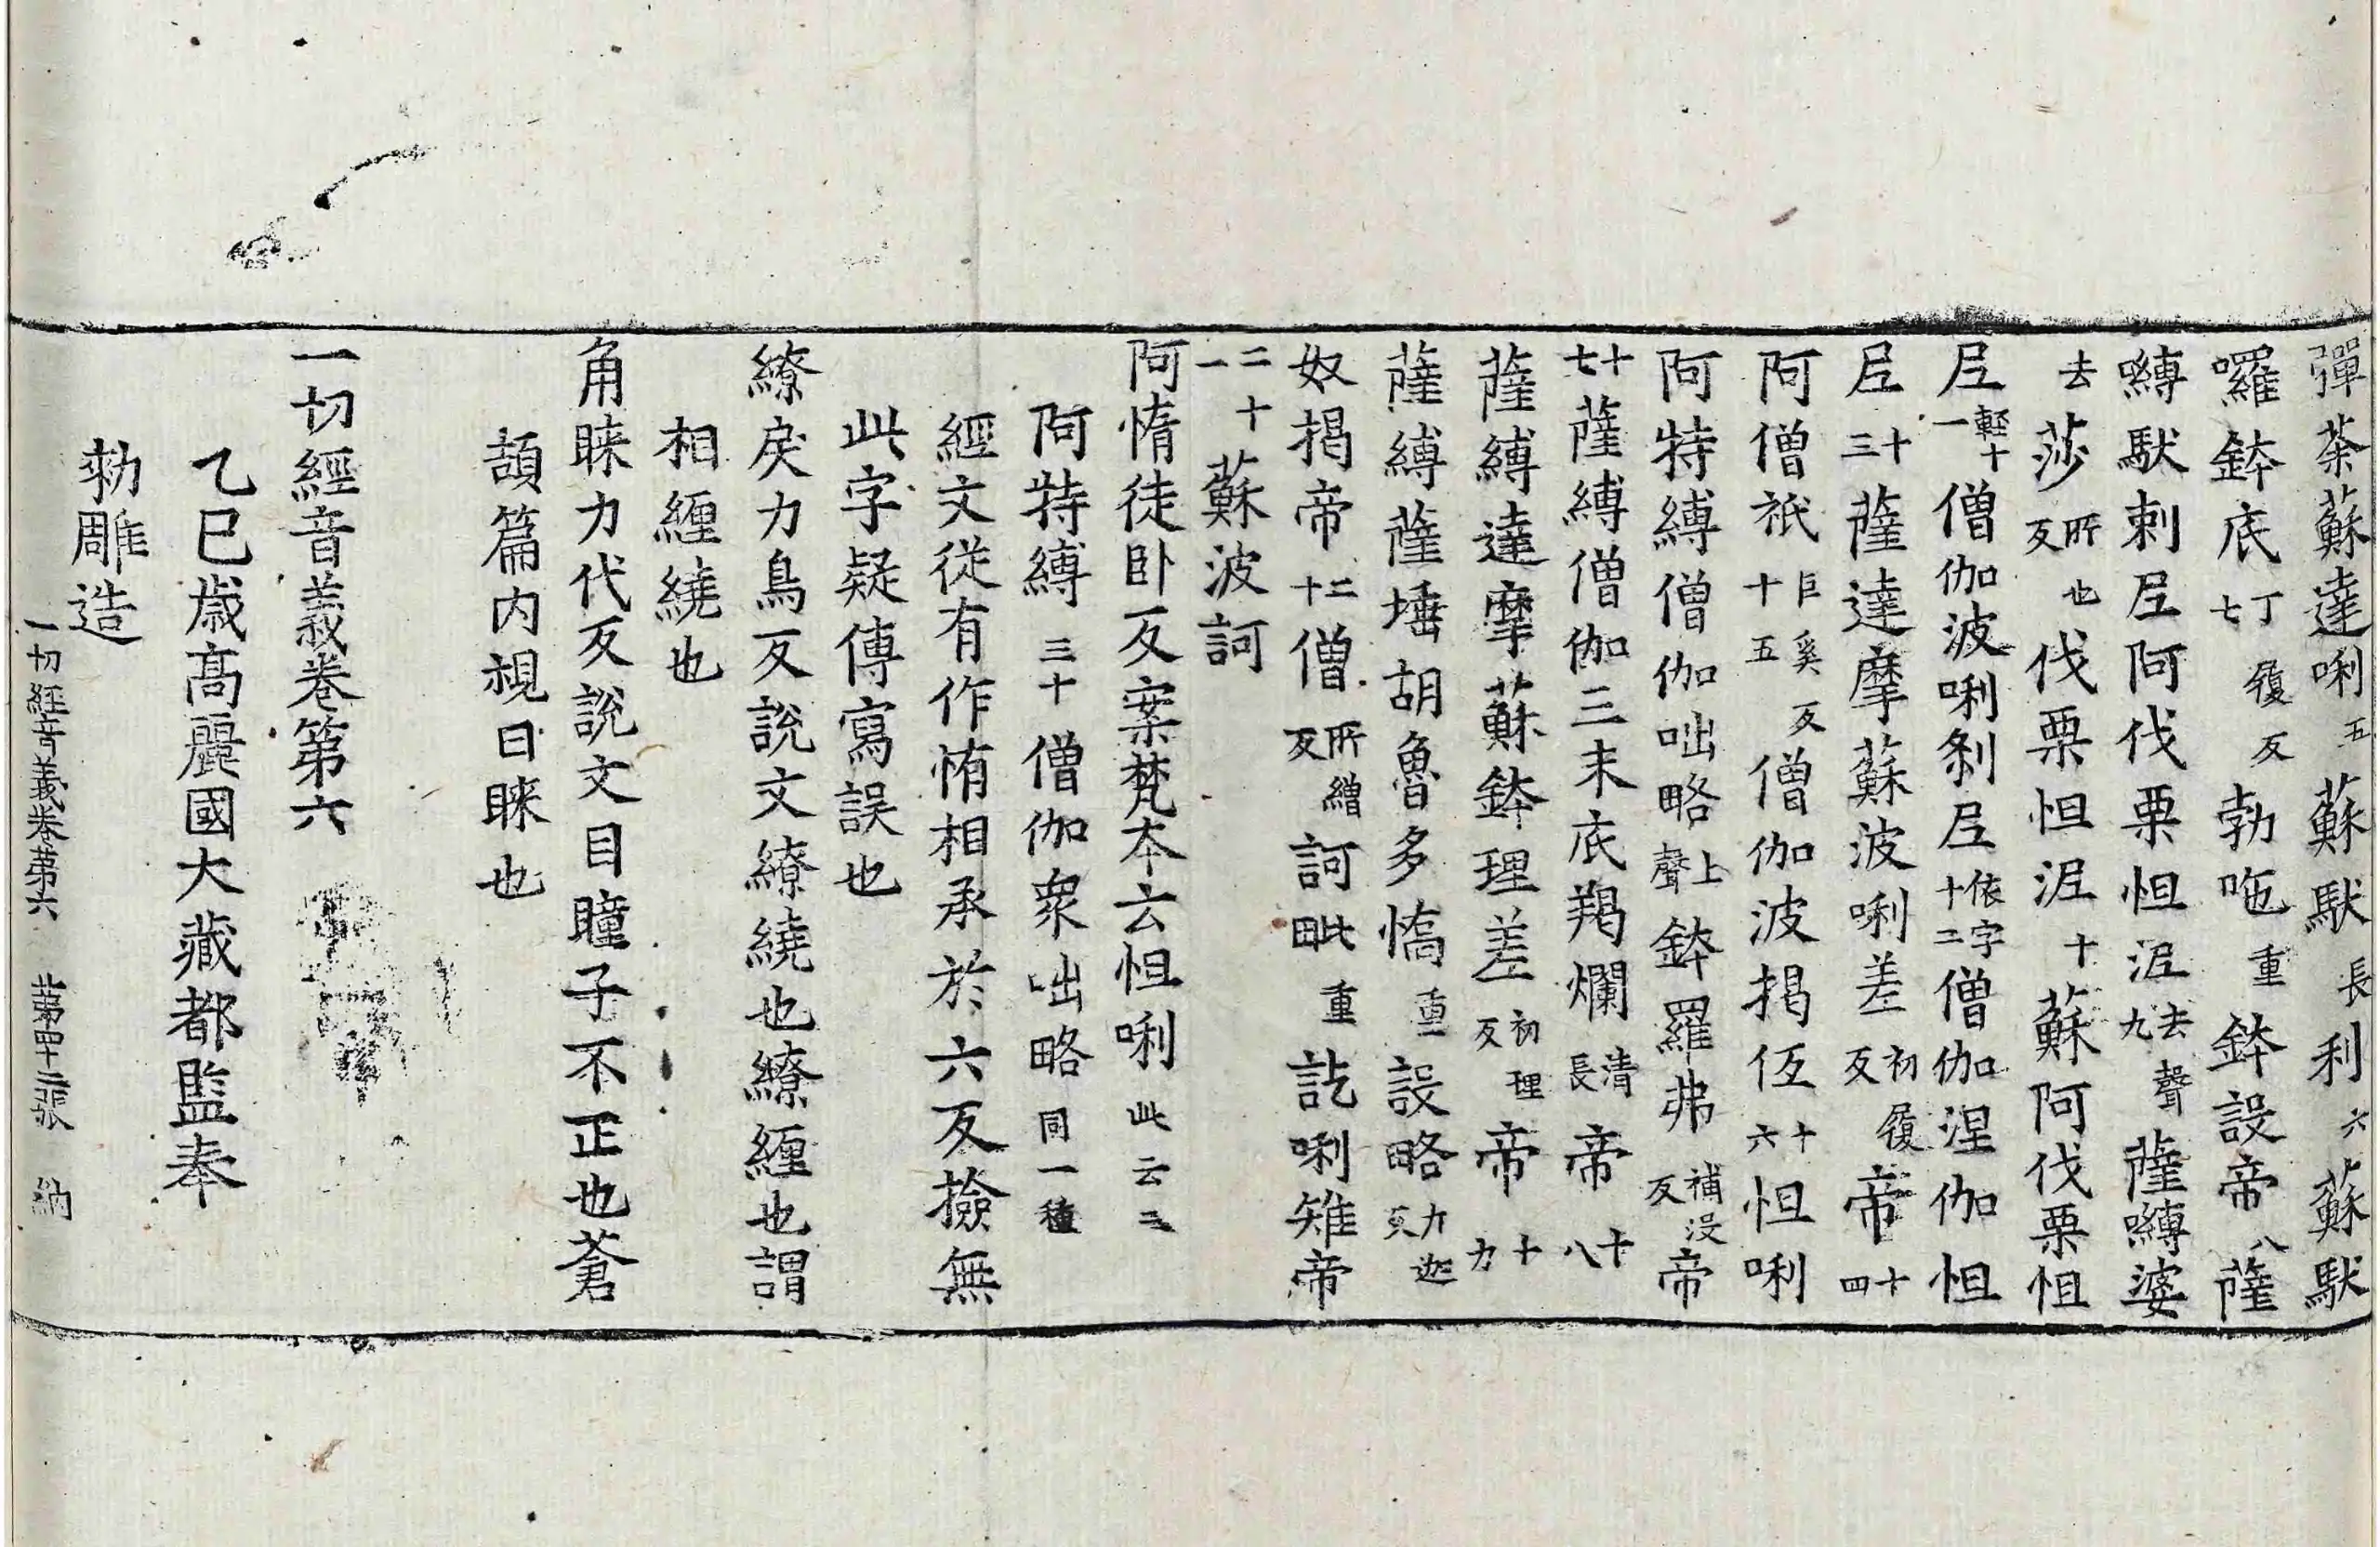 彈茶蘇達唎五蘇馱長利六蘇馱
囉鉢底丁履反七勃咃重鉢設帝八薩
嚩馱剌𡰱阿伐栗怛泥去聲九薩嚩婆
去莎所也反伐栗怛泥十蘇阿伐栗怛
𡰱輕十一僧伽波唎剎𡰱依字十二僧伽涅伽怛
𡰱十三薩達摩蘇波唎差初履反帝十四
阿僧祇巨奚反十五僧伽波揭伍十六怛唎
阿特縛僧伽咄略上聲鉢羅弗補沒反帝
十七薩縛僧伽三末底羯爛清長帝十八
薩縛達摩蘇鉢理差初理反帝十九
薩縛薩埵胡魯多憍重設略力迦反
奴揭帝二十僧所繒反訶毗重訖唎雉帝
二十一蘇波訶
阿惰徒卧反案梵本云怛唎此云三
阿特縛三十僧伽衆咄略同一種
經文從有作惰相承於六反撿無
此字疑傳寫誤也
繚戾力鳥反說文繚繞也繚纏也謂
相纏繞也
角睞力代反說文目瞳子不正也蒼
頡篇内視曰睞也
一切經音義卷第六
乙巳歳髙麗國大藏都監奉
勑雕造
一切經音義卷第六 第四十二張 納